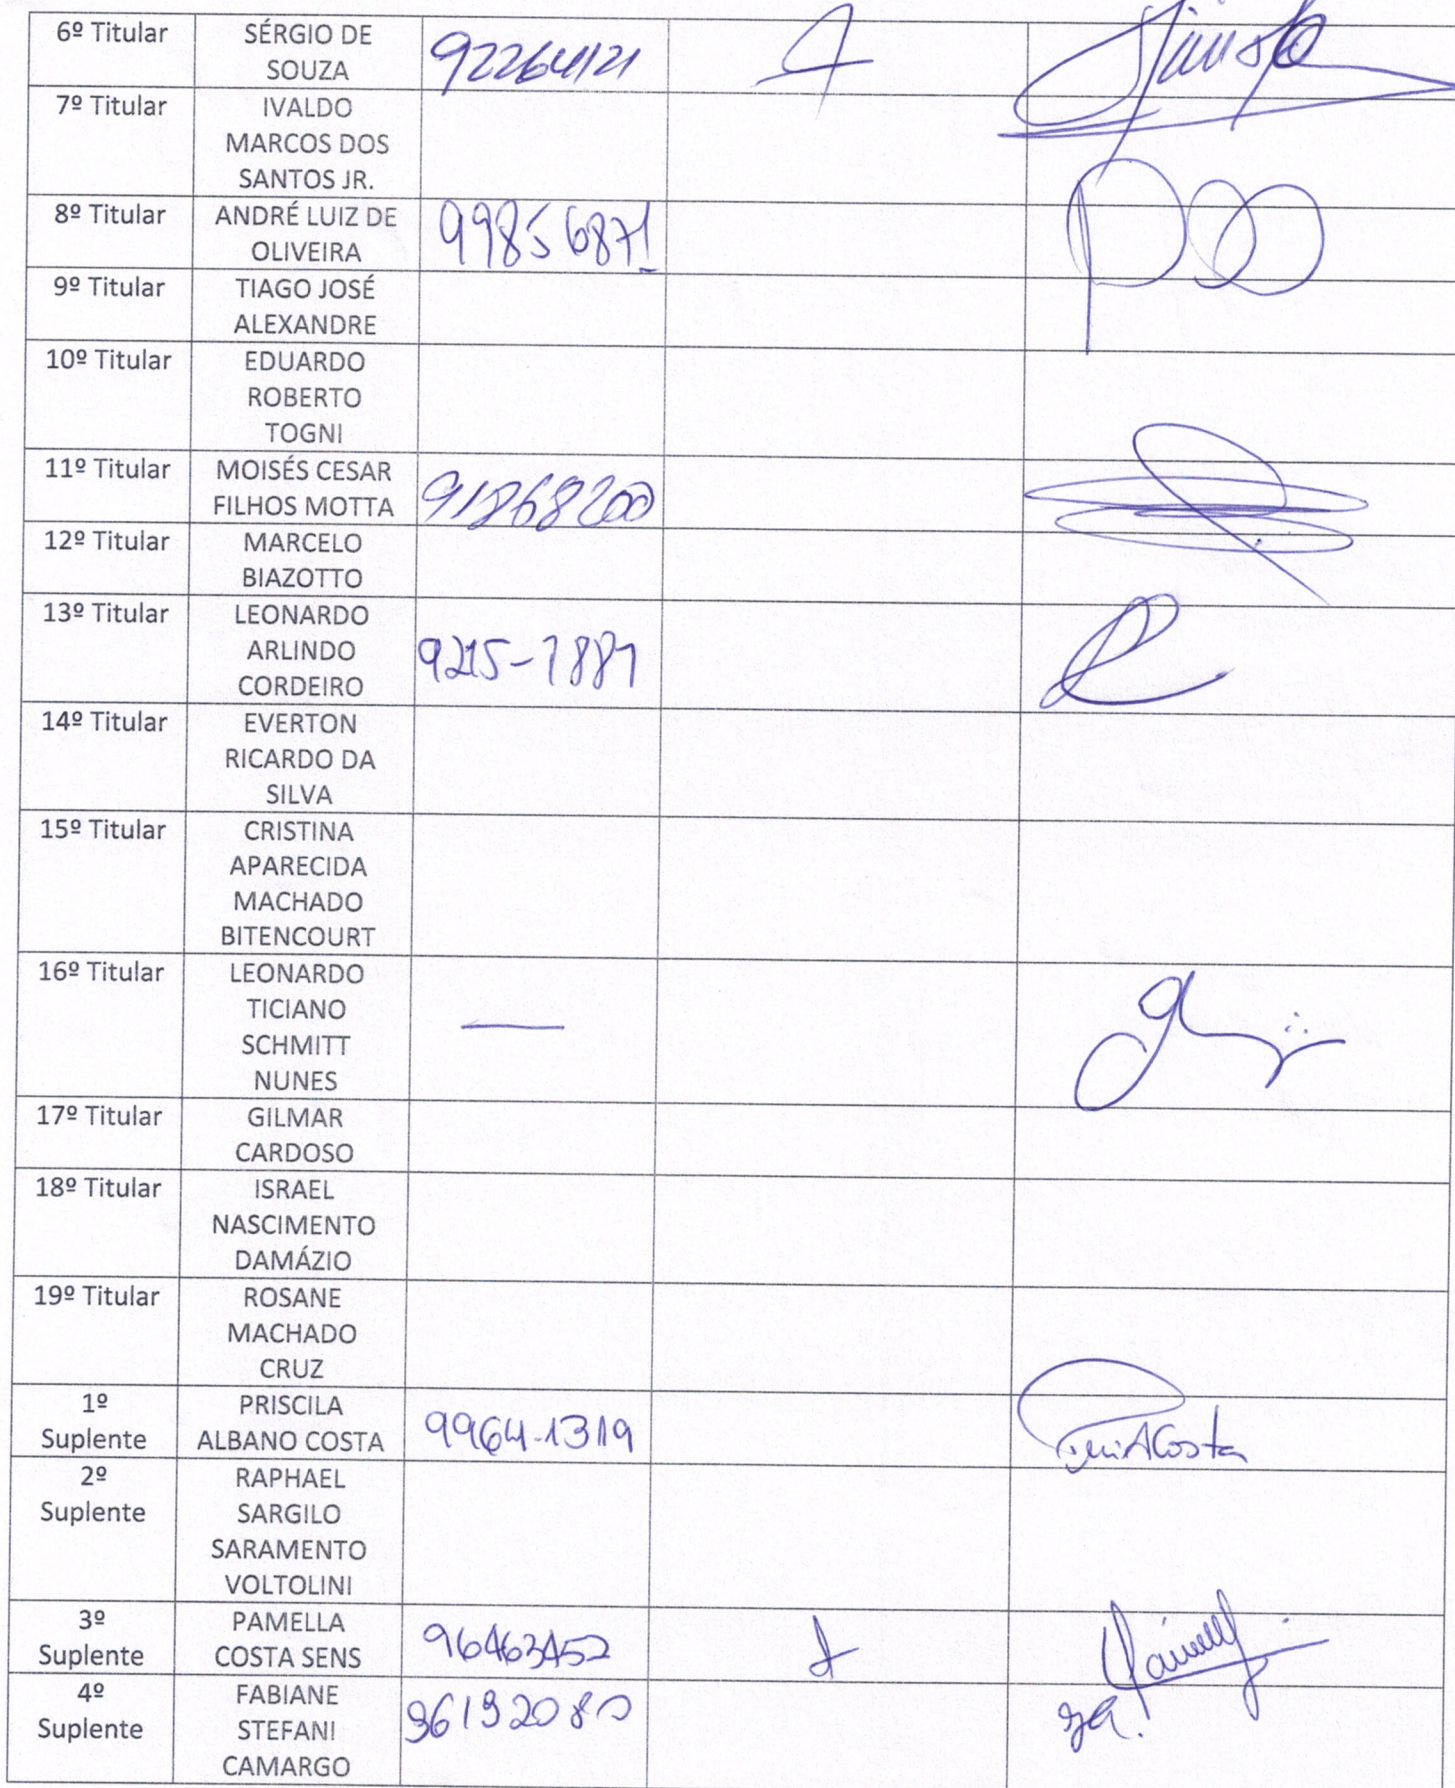 6º Titular
SÉRGIO DE
SOUZA
7º Titular
IVALDO
MARCOS DOS
SANTOS JR.
8º Titular
ANDRÉ LUIZ DE
OLIVEIRA
99856871
9º Titular
TIAGO JOSÉ
ALEXANDRE
10º Titular
EDUARDO
ROBERTO
TOGNI
11º Titular
MOISÉS CESAR
FILHOS MOTTA
91868200
12º Titular
MARCELO
BIAZOTTO
13º Titular
LEONARDO
ARLINDO
CORDEIRO
14º Titular
EVERTON
RICARDO DA
SILVA
15º Titular
CRISTINA
APARECIDA
MACHADO
BITENCOURT
16º Titular
LEONARDO
TICIANO
SCHMITT
NUNES
17º Titular
GILMAR
CARDOSO
18º Titular
ISRAEL
NASCIMENTO
DAMÁZIO
19º Titular
ROSANE
MACHADO
CRUZ
1º
Suplente
PRISCILA
ALBANO COSTA
9964-1319
2º
Suplente
RAPHAEL
SARGILO
SARAMENTO
VOLTOLINI
3º
Suplente
PAMELLA
COSTA SENS
96463452
4º
Suplente
FABIANE
STEFANI
CAMARGO
96192080